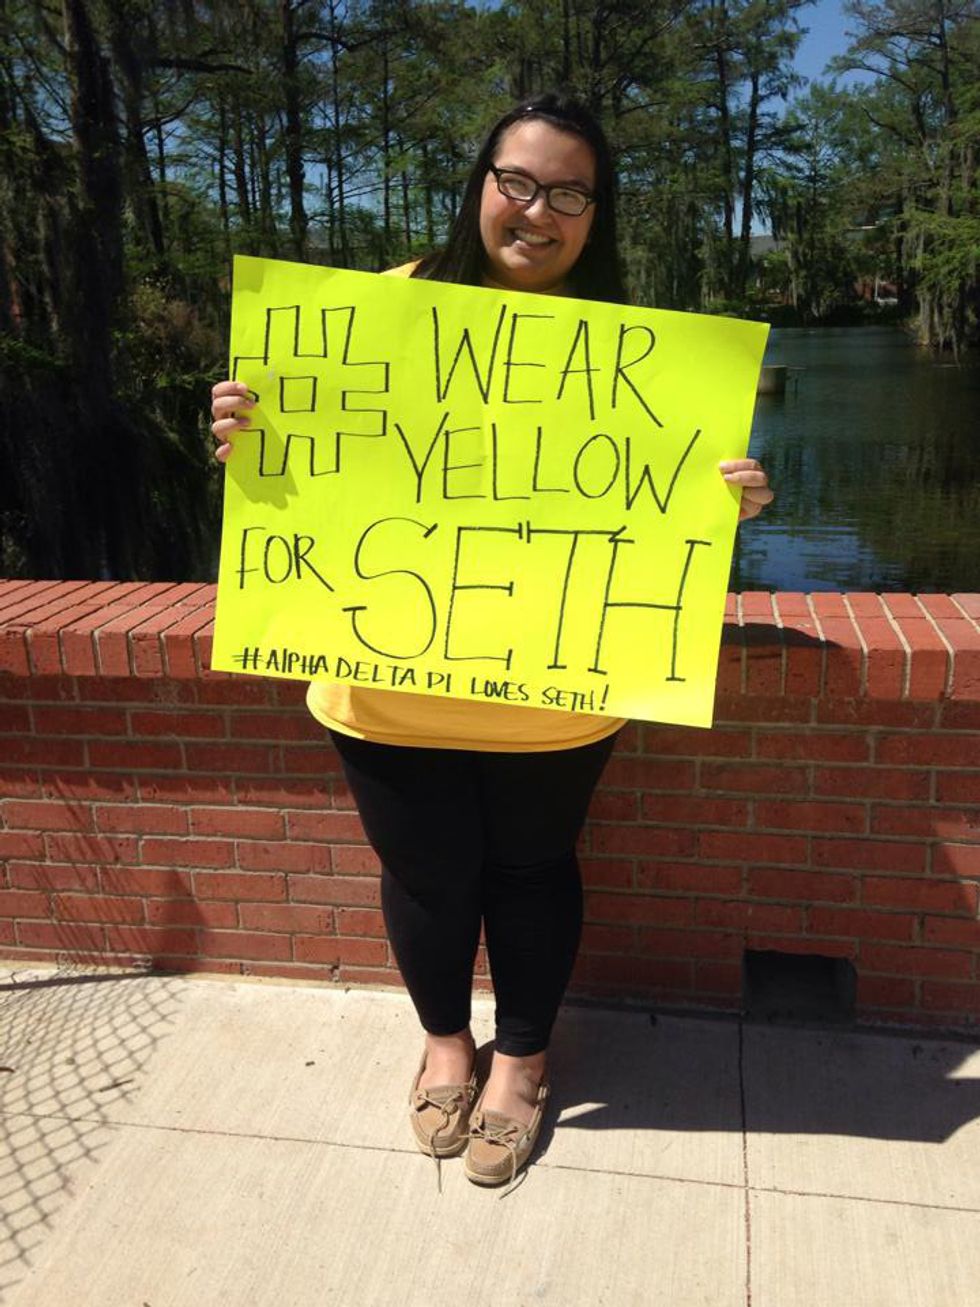 # WEAR
YELLOW
FOR SETH
#AlPHA DELTA PI LOVES SETH!